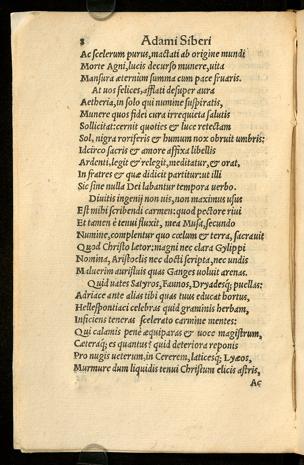 8 Adami Siberi
Ac scelerum purus, mactati ab origine mundi
Morte Agni, lucis decurso munere, uita
Mansura æternùm summa cum pace fruaris.
At uos felices, afflati desuper aura
Aetheria, in solo qui numine suspiratis,
Munere quos fidei cura irrequieta salutis
Sollicitat: cernit quoties & luce retectam
Sol, nigra roriferis & humum nox obruit umbris:
Idcirco sacris & amore affixa libellis
Ardenti, legit & relegit, meditatur, & orat,
In fratres & quæ didicit partitur: ut illi
Sic sine nulla Dei labantur tempora uerbo.
Diuitis ingenij non uis, non maximus usus
Est mihi scribendi carmen: quod pectore riui
Et tamen è tenui fluxit, mea Musa, secundo
Numine, complentur quo cœlum & terra, sacrauit
Quod Christo lætor: magni nec clara Gylippi
Nomina, Aristoclis nec docti scripta, nec undis
Maluerim aurifluis quas Ganges uoluit arenas.
Quid uates Satyros, Faunos, Dryadesq; puellas:
Adriace ante alias tibi quas tuus educat hortus,
Hellespontiaci celebras quid graminis herbam,
Inficiens teneras scelerato carmine mentes:
Qui calamis penè æquiparas & uoce magistrum,
Cæteraq; es quantus? quid deteriora reponis
Pro nugis ueterum, in Cererem, laticesq; Lyæos,
Murmure dum liquidis tenui Christum elicis astris,
Ac